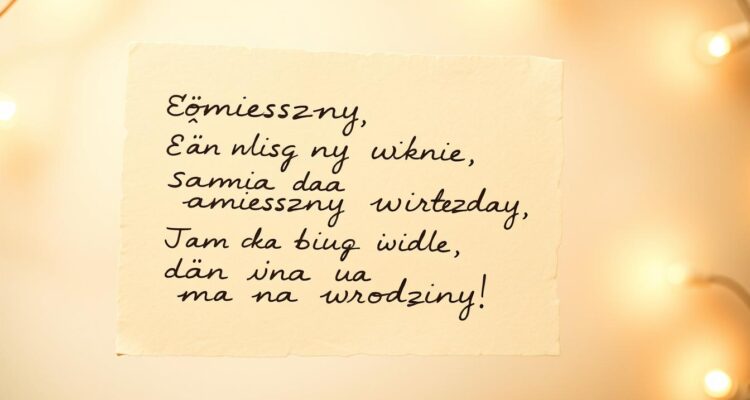 Eômiesszny,
Eän nlisg ny wiknie,
Sarmia daa
amiesszny wirtezday,
Jam cka biug widle,
dän vna ua
ma na wrodziny!